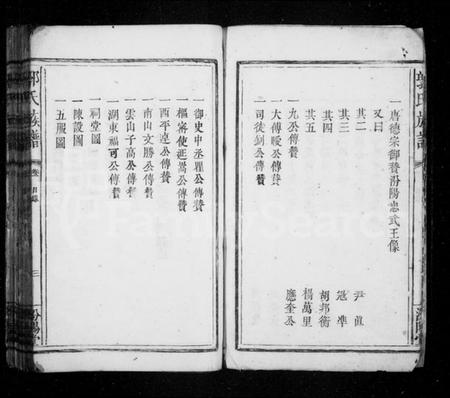 郭氏族譜
汾陽
一唐德宗御贊汾陽忠武王像
又曰 尹眞
其二 寇準
其三 胡邦衡
其四 楊萬里
其五 應奎公
一九公傳贊
一太傅曖公傳贊
一司徒釗公傳贊
一御史中丞公傳贊
一樞密使崇公傳贊
一西平公傳贊
一南山文勝公傳贊
一雲山子高公傳贊
一湖東福可公傳贊
一祠堂圖
一陳設圖
一五服圖
郭氏族譜
卷 目錄
三
汾陽
FamilySearch